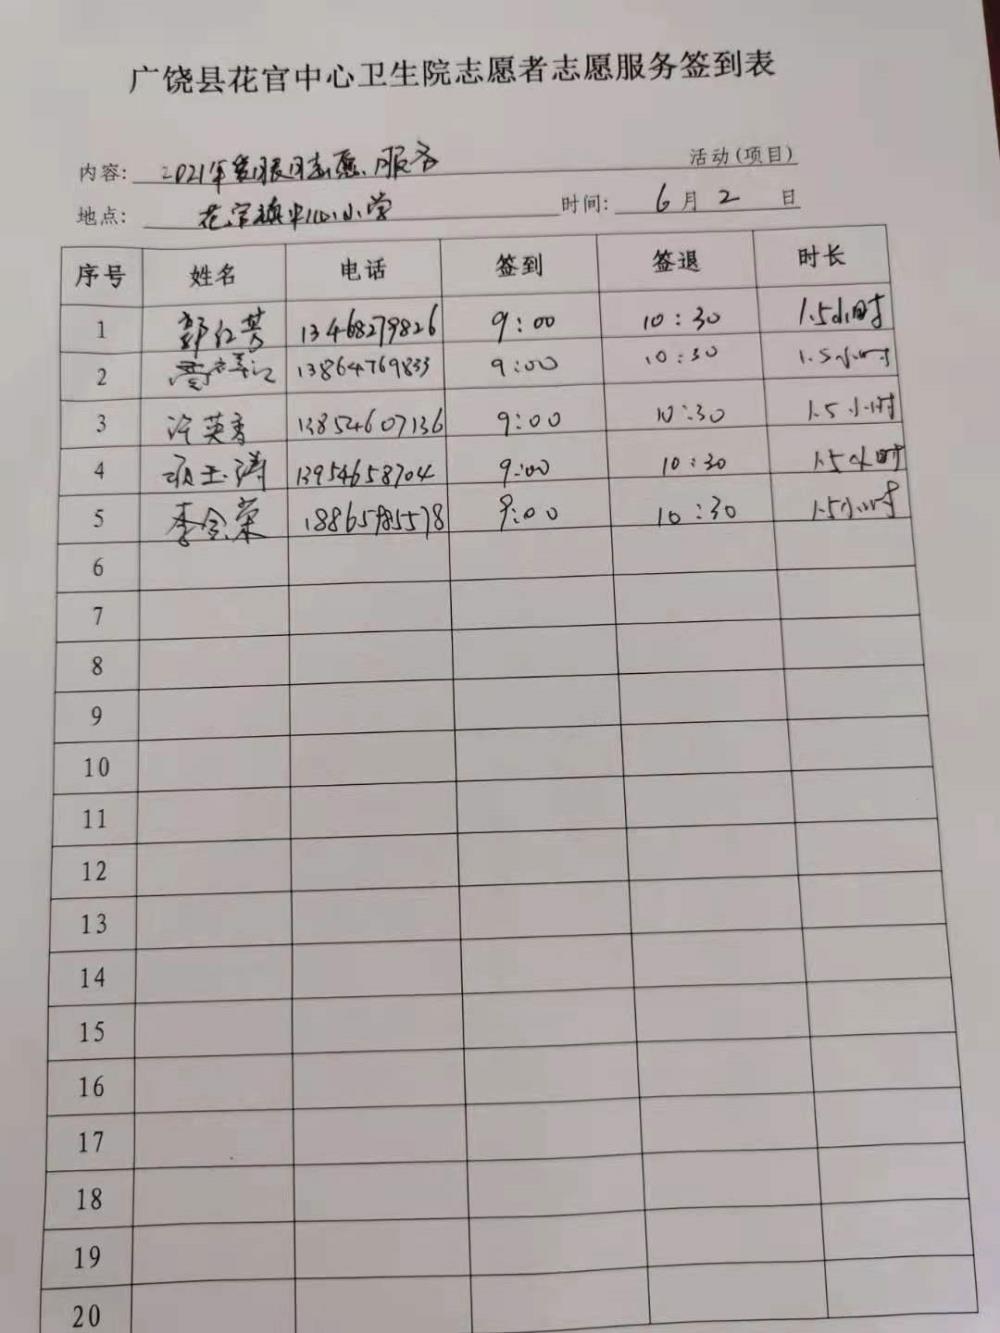 广饶县花官中心卫生院志愿者志愿服务签到表
内容: 2021年爱眼日志愿服务 活动(项目)
地点: 花官镇中心小学 时间: 6月2日
序号 姓名 电话 签到 签退 时长
1 郭红芳 13468279826 9:00 10:30 1.5小时
2 13864769833 9:00 10:30 1.5小时
3 许英香 13854607136 9:00 10:30 1.5小时
4 玉涛 13954658704 9:00 10:30 1.5小时
5 李会荣 18865785578 9:00 10:30 1.5小时
6
7
8
9
10
11
12
13
14
15
16
17
18
19
20